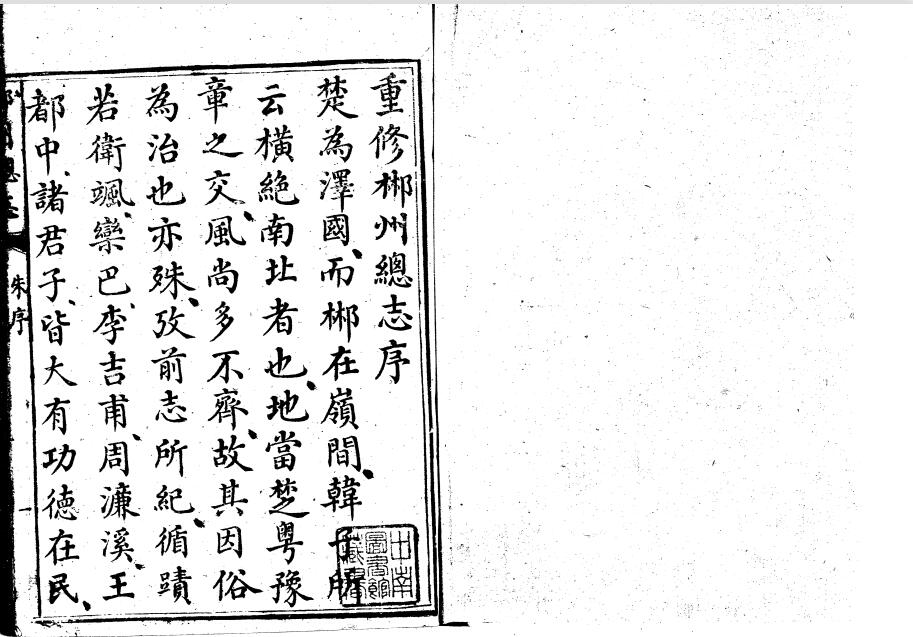 重修郴州總志序
楚為澤國、而郴在嶺間、韓子所
云橫絶南北者也、地當楚粵豫
章之交、風尚多不齊、故其因俗
為治也亦殊、攷前志所紀、循蹟
若衛颯、欒巴、李吉甫、周濂溪、王
都中、諸君子、皆大有功德在民、
朱序
一
圖書館